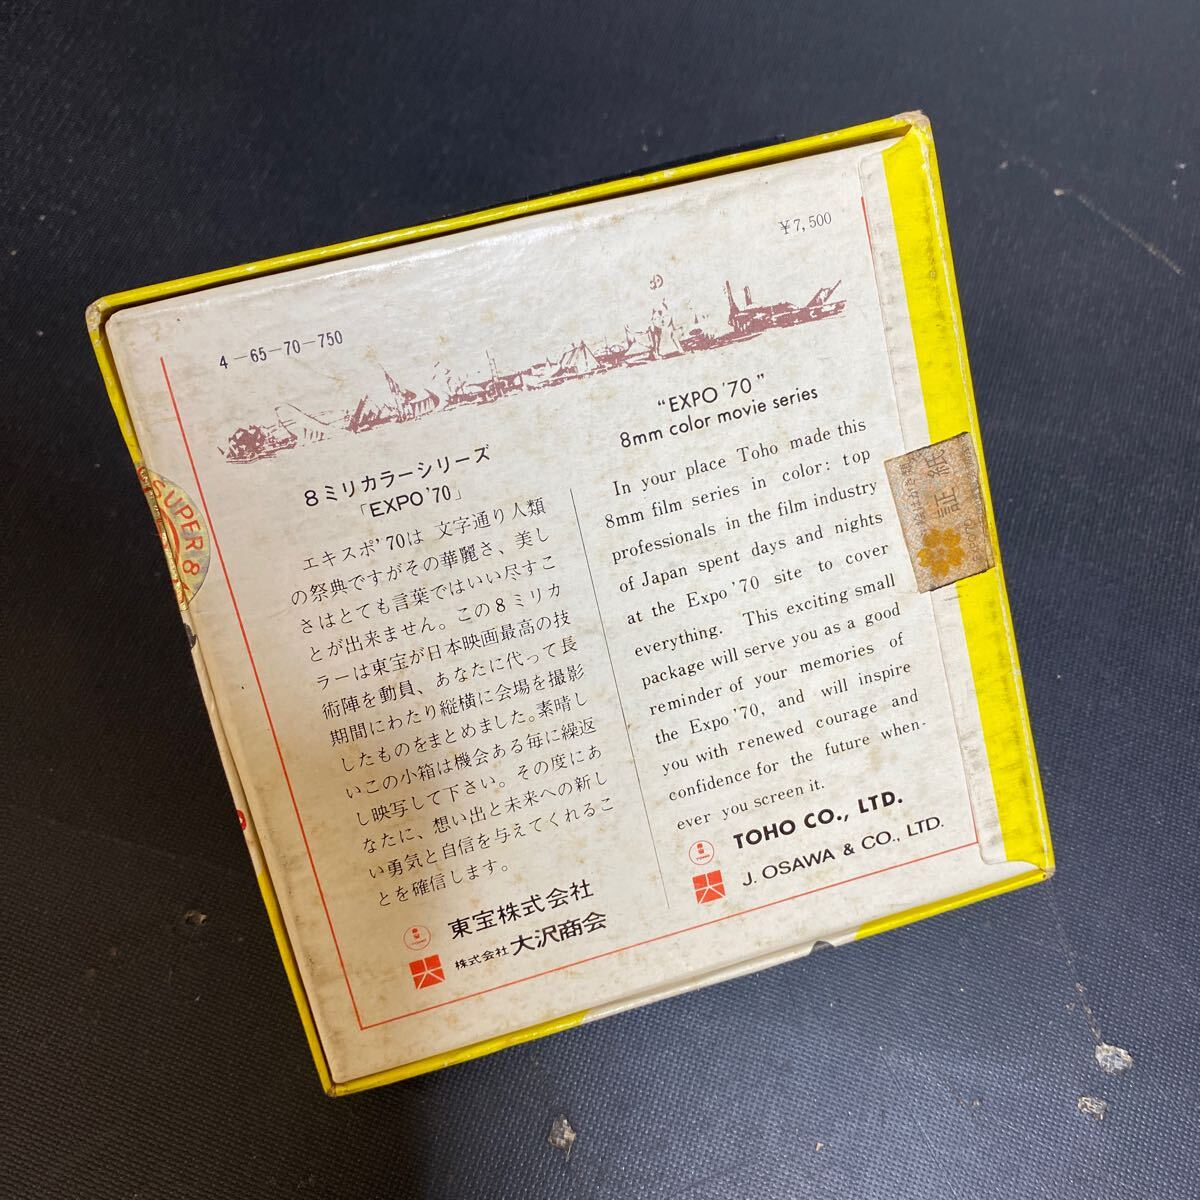 ¥7,500
4-65-70-750
8ミリカラーシリーズ
「EXPO'70」
エキスポ'70は 文字通り人類
の祭典ですがその華麗さ、美し
さはとても言葉ではいい尽すこ
とが出来ません。この8ミリカ
ラーは東宝が日本映画最高の技
術陣を動員、あなたに代って長
期間にわたり縦横に会場を撮影
したものをまとめました。素晴し
いこの小箱は機会ある毎に繰返
し映写して下さい。その度にあ
なたに、想い出と未来への新し
い勇気と自信を与えてくれるこ
とを確信します。
東宝株式会社
株式会社 大沢商会
"EXPO '70"
8mm color movie series
In your place Toho made this
8mm film series in color: top
professionals in the film industry
of Japan spent days and nights
at the Expo '70 site to cover
everything. This exciting small
package will serve you as a good
reminder of your memories of
the Expo '70, and will inspire
you with renewed courage and
confidence for the future when-
ever you screen it.
TOHO CO., LTD.
J. OSAWA & CO., LTD.
SUPER 8
証紙